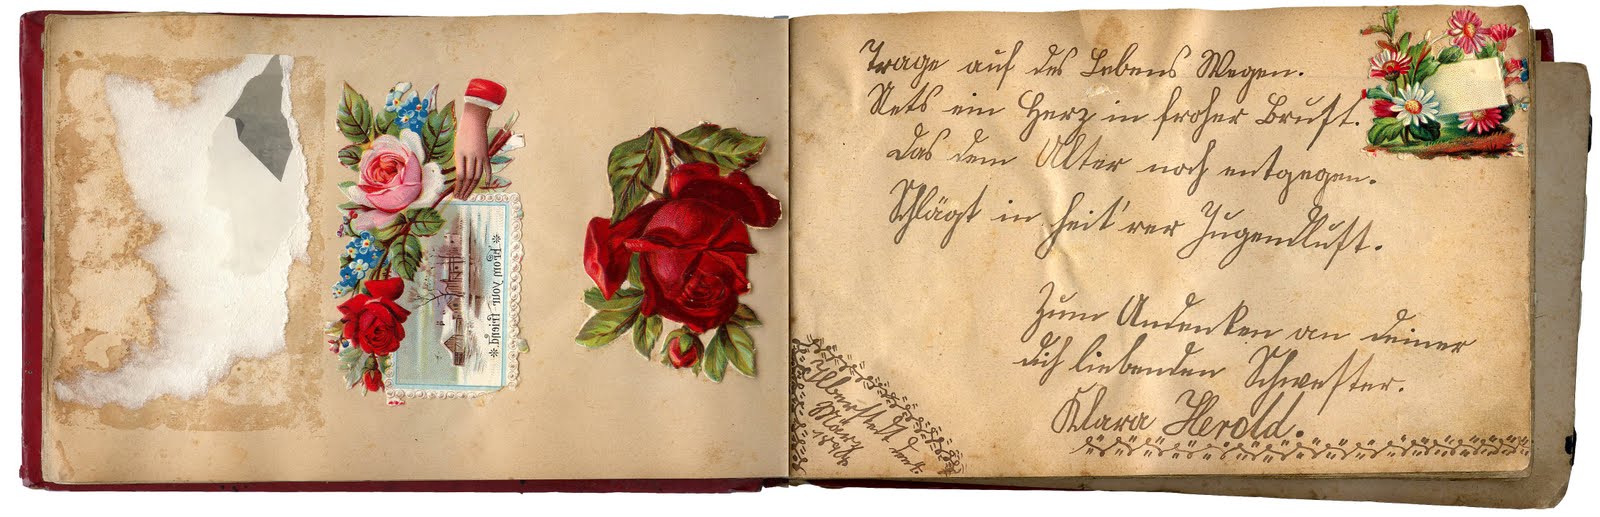 * From Your Friend *
Trage auf des Lebens Wegen.
Stets ein Herz in froher Brust.
Das dem Alter noch entgegen.
Schlägt in heit'rer Jugendlust.
Zum Andenken an deiner
dich liebenden Schwester.
Klara Herold.
März